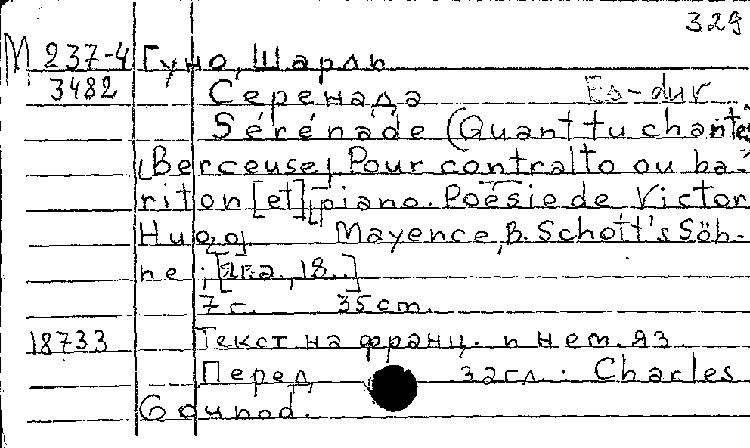 329
М 237-4 Гуно, Шарль
3482 Серенада Es-dur
Sérénade (Quant tu chantes
(Berceuse). Pour contralto ou ba-
riton [et] piano. Poésie de Victor
Hugo. Mayence, B. Schott's Söh-
ne, 18..]
7 с. 35 cm.
18733 Текст на франц. и нем. яз
Перед загл.: Charles
Gounod.